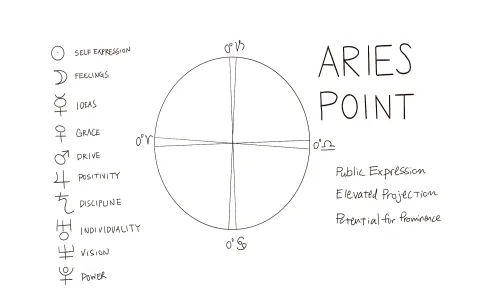 ☉ SELF EXPRESSION
☽ FEELINGS
☿ IDEAS
♀ GRACE
♂ DRIVE
♃ POSITIVITY
♄ DISCIPLINE
♅ INDIVIDUALITY
♆ VISION
⯓ POWER
0°♑
0°♈
0°♎
0°♋
ARIES
POINT
Public Expression
Elevated Projection
Potential for Prominence